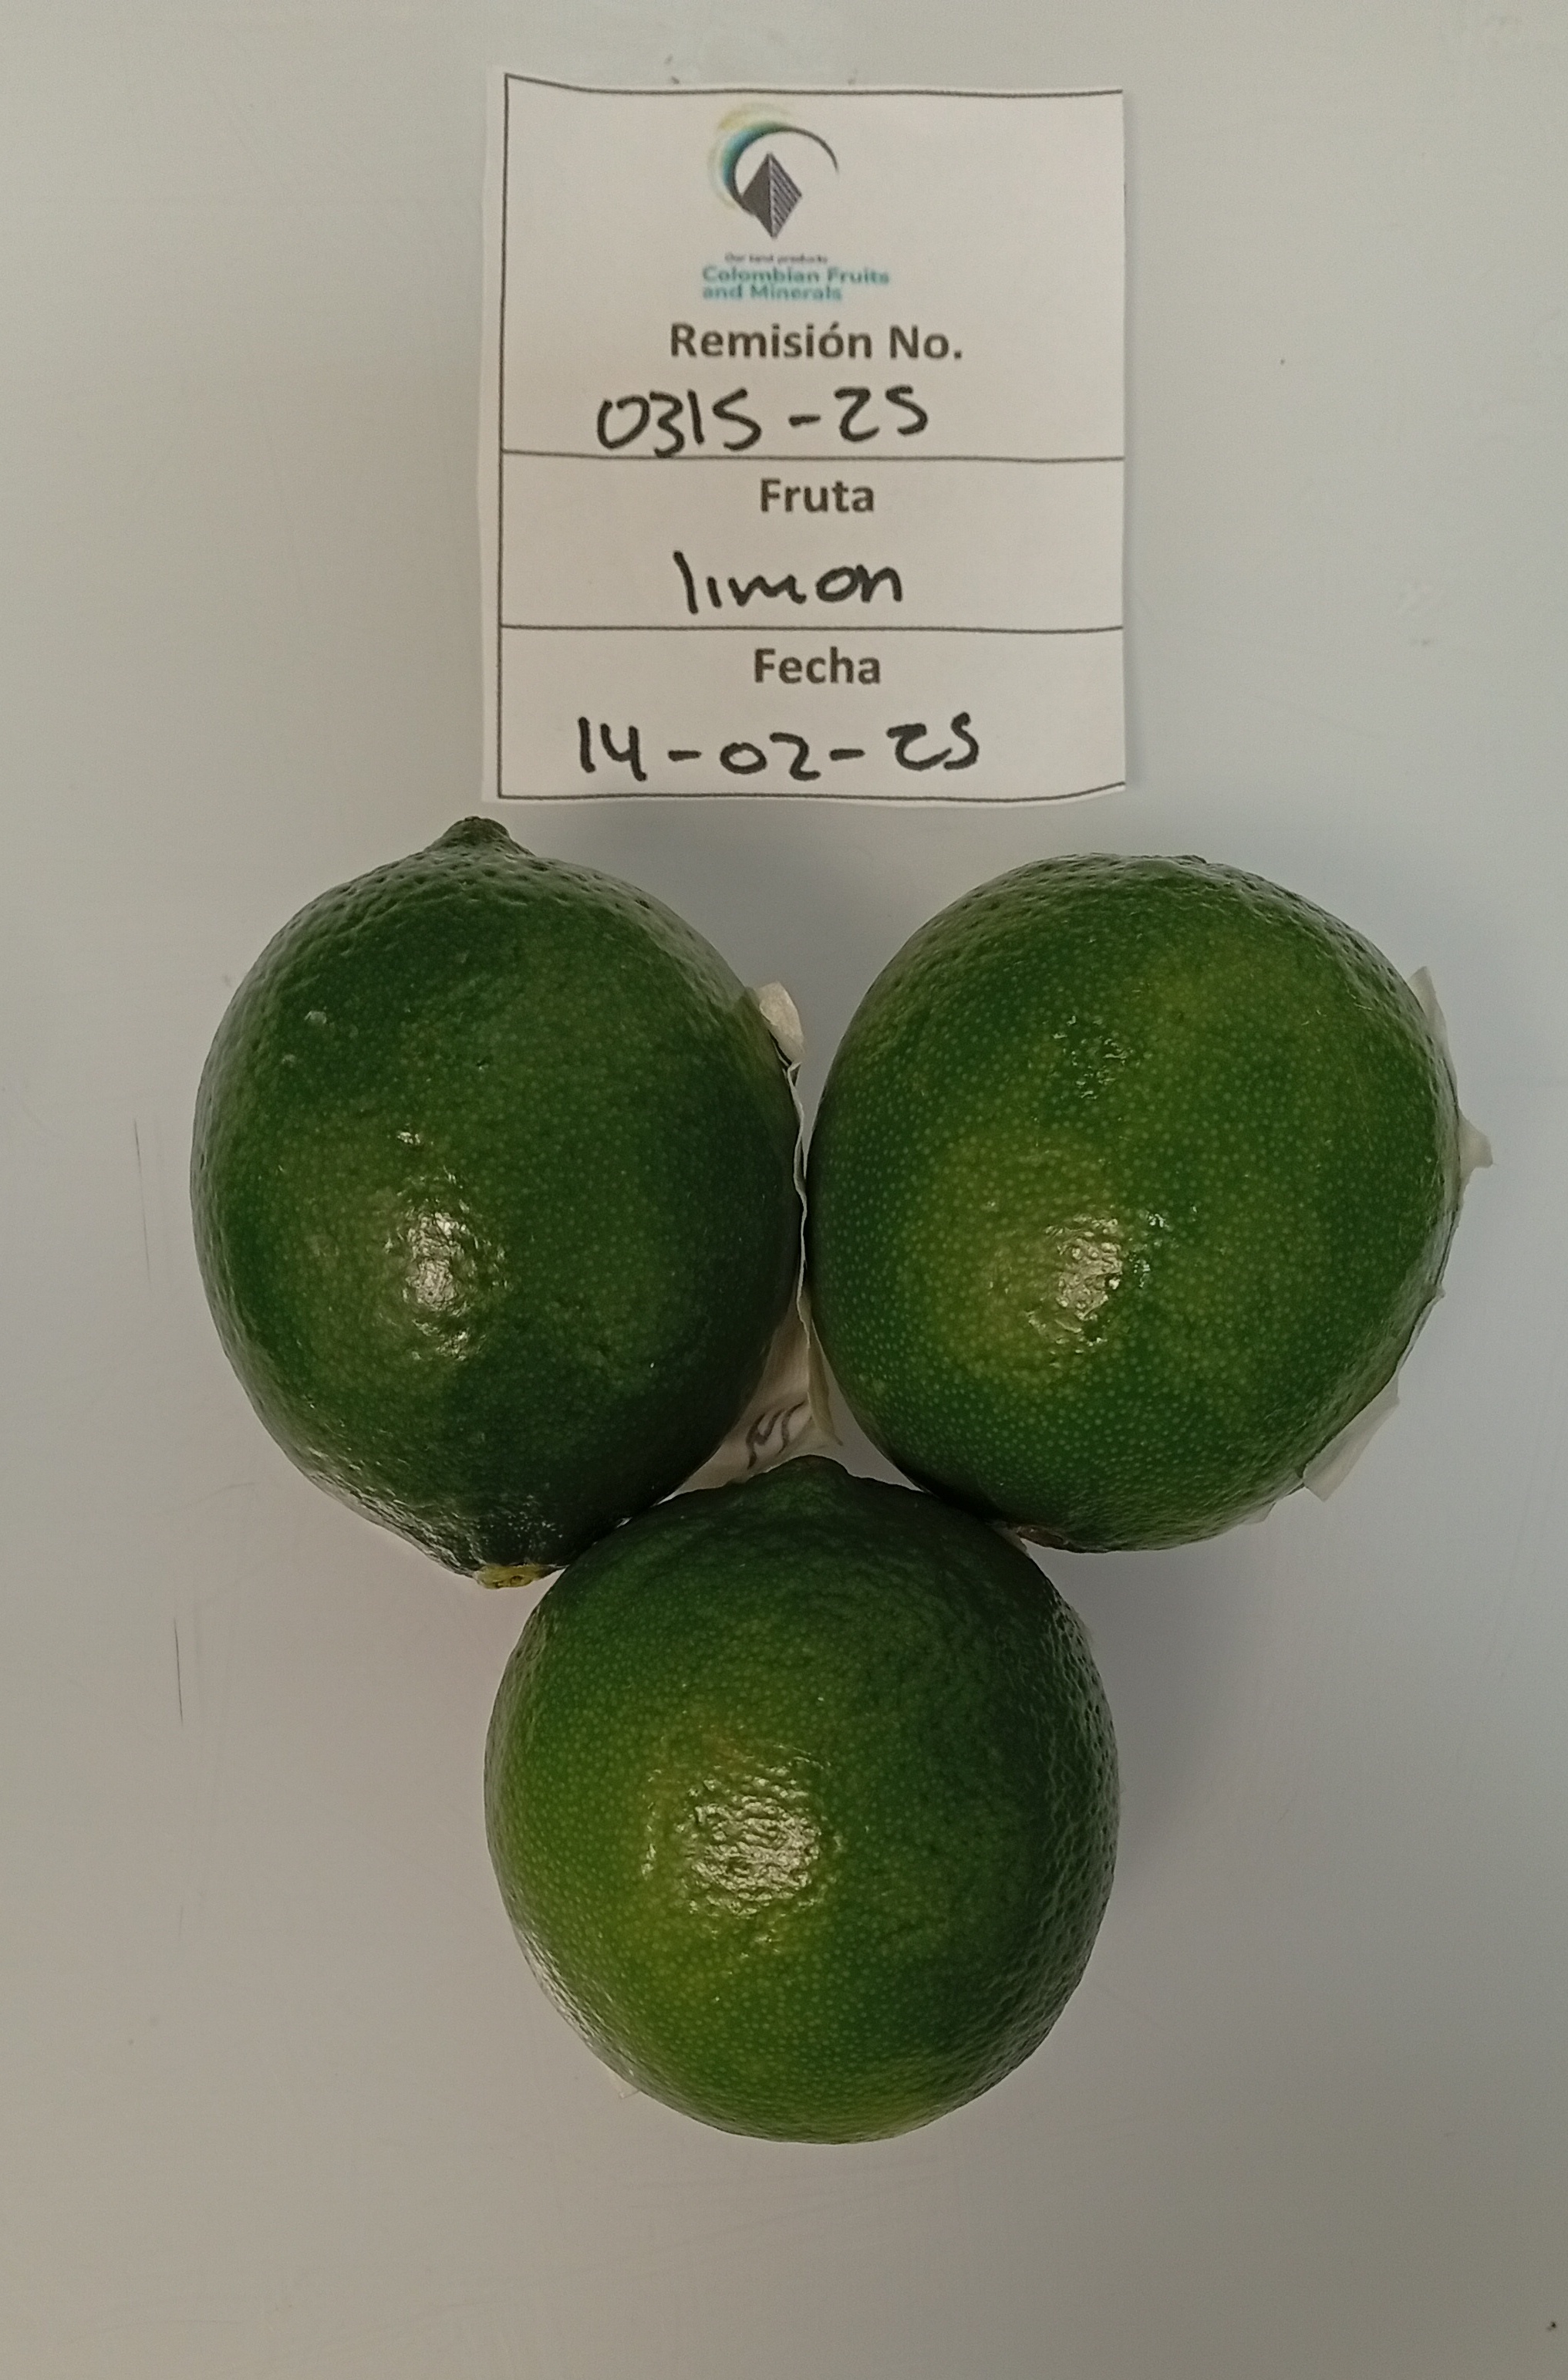 Our land products
Colombian Fruits
and Minerals
Remisión No.
0315-25
Fruta
limon
Fecha
14-02-25